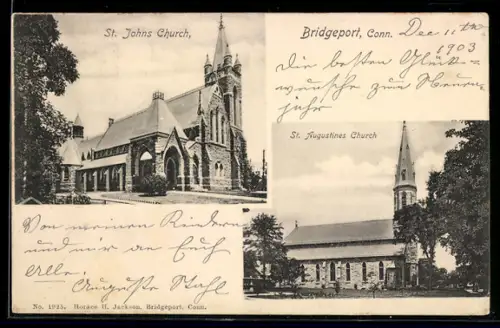 St. Johns Church,
Bridgeport, Conn. Dec 11th
1903
Die besten Glück-
wünsche zum Neuen
jahr
St. Augustines Church
Von meinen Kindern
und mir an Euch
Alle.
Auguste Stahl
No. 1925. Horace H. Jackson, Bridgeport, Conn.